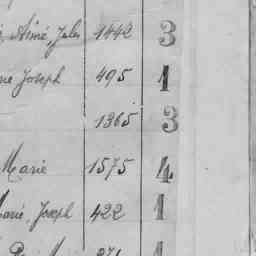 Aimé, Jules 1442 3
Joseph 495 1
1365 3
Marie 1575 4
Marie, Joseph 422 1
1